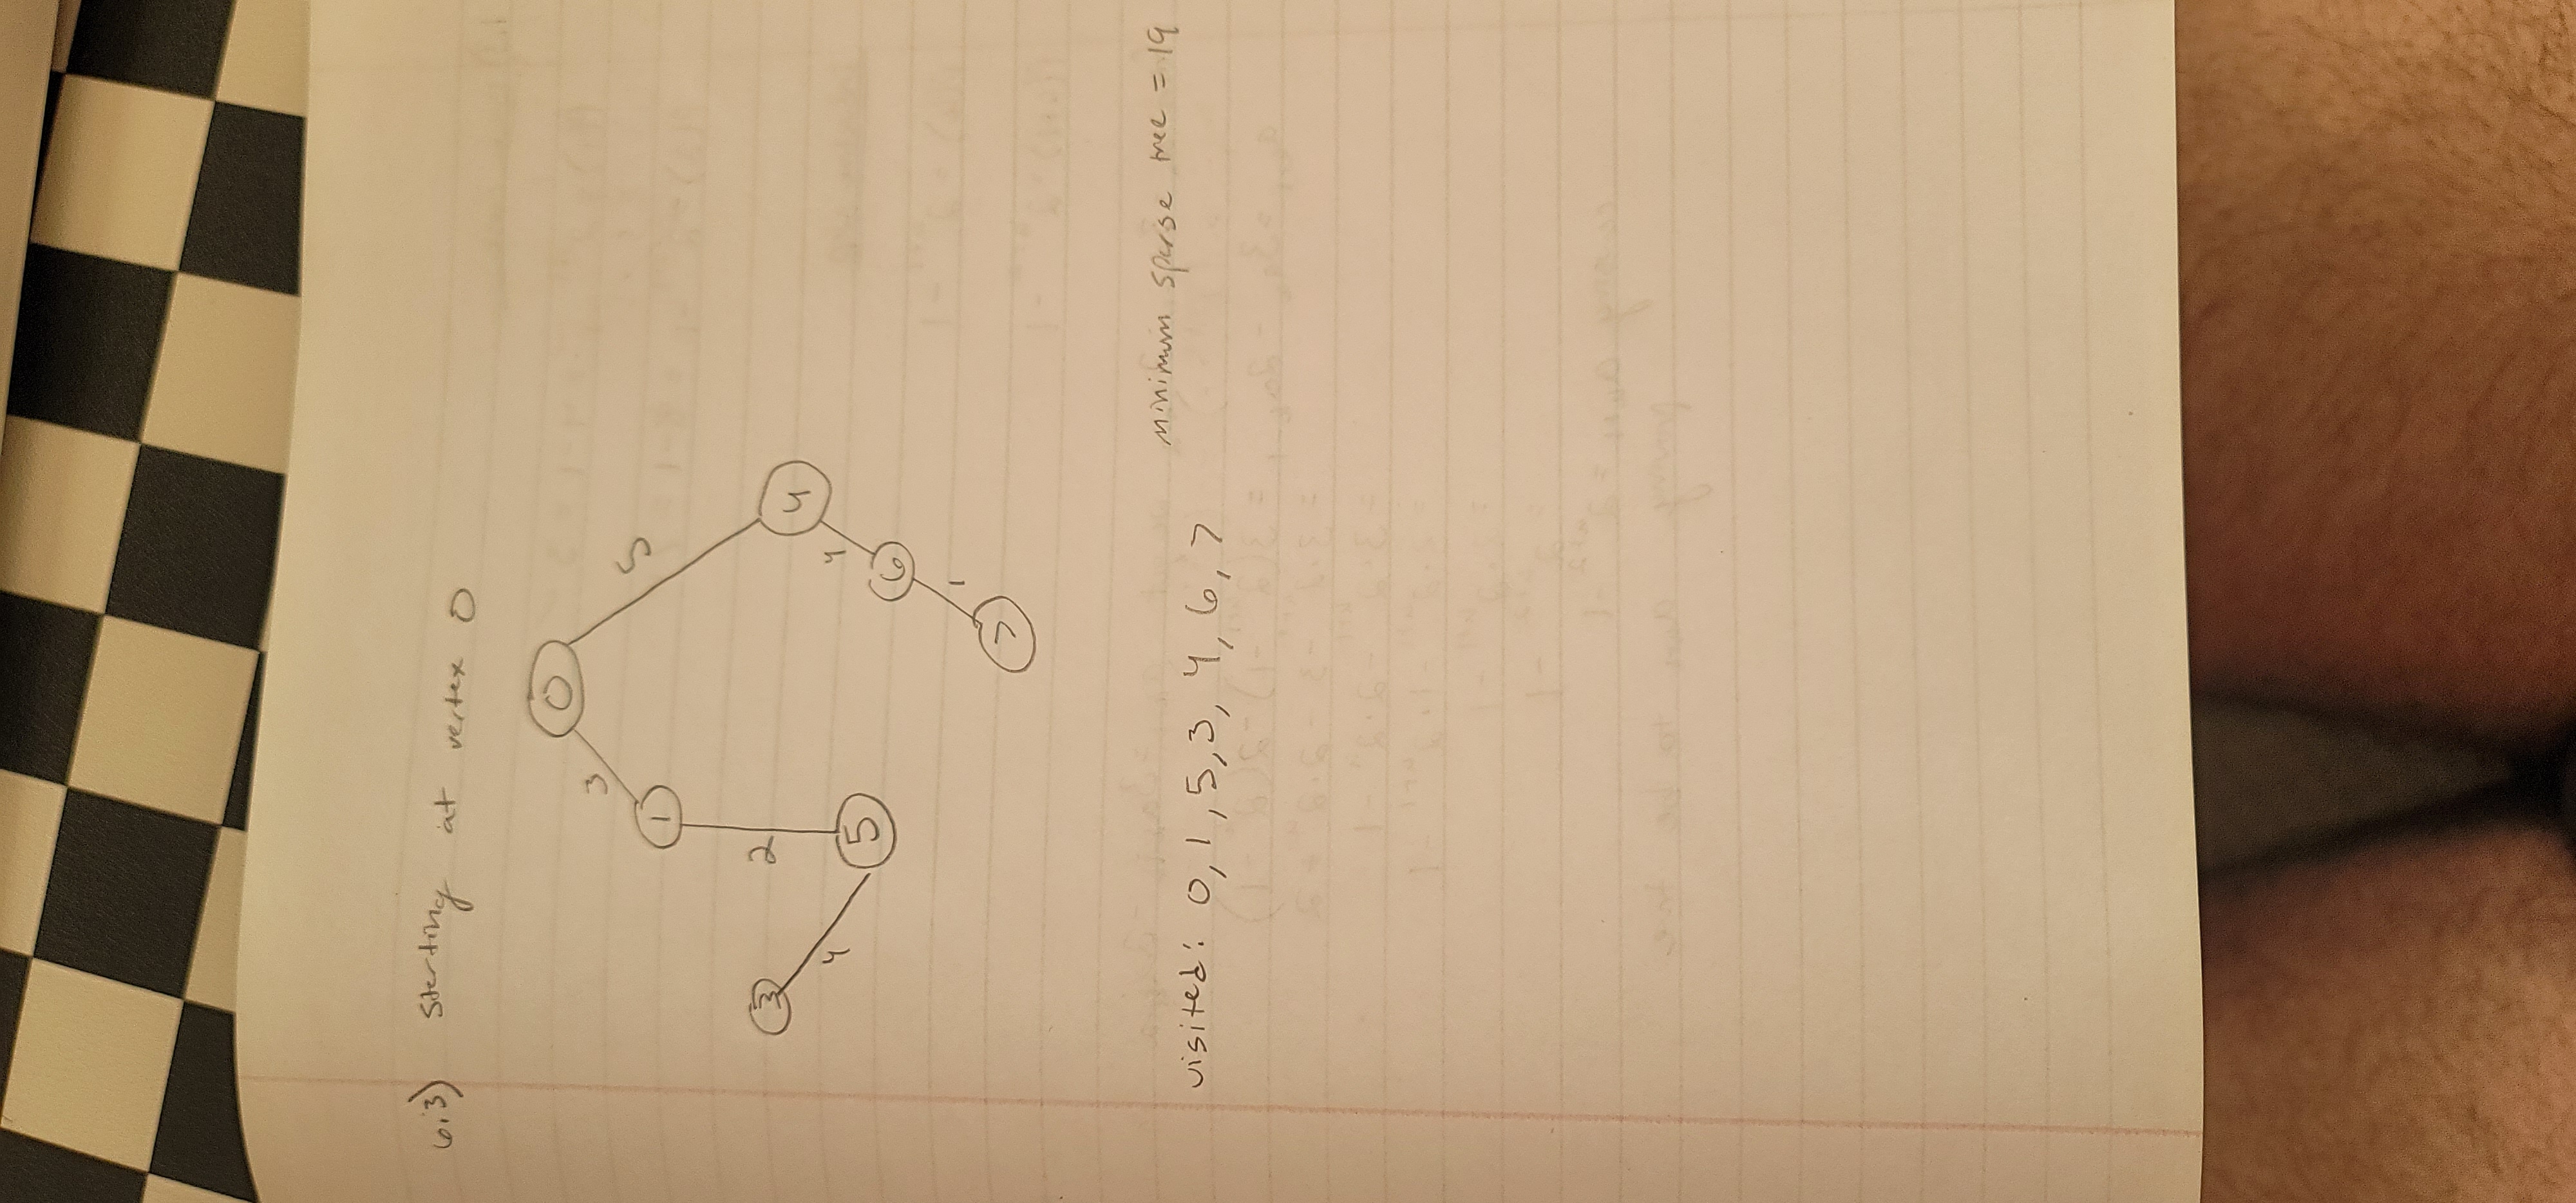 6.3) Starting at vertex 0
0
3
5
1
2
3
4
4
4
5
6
1
7
minimum sparse tree = 19
visited: 0, 1, 5, 3, 4, 6, 7